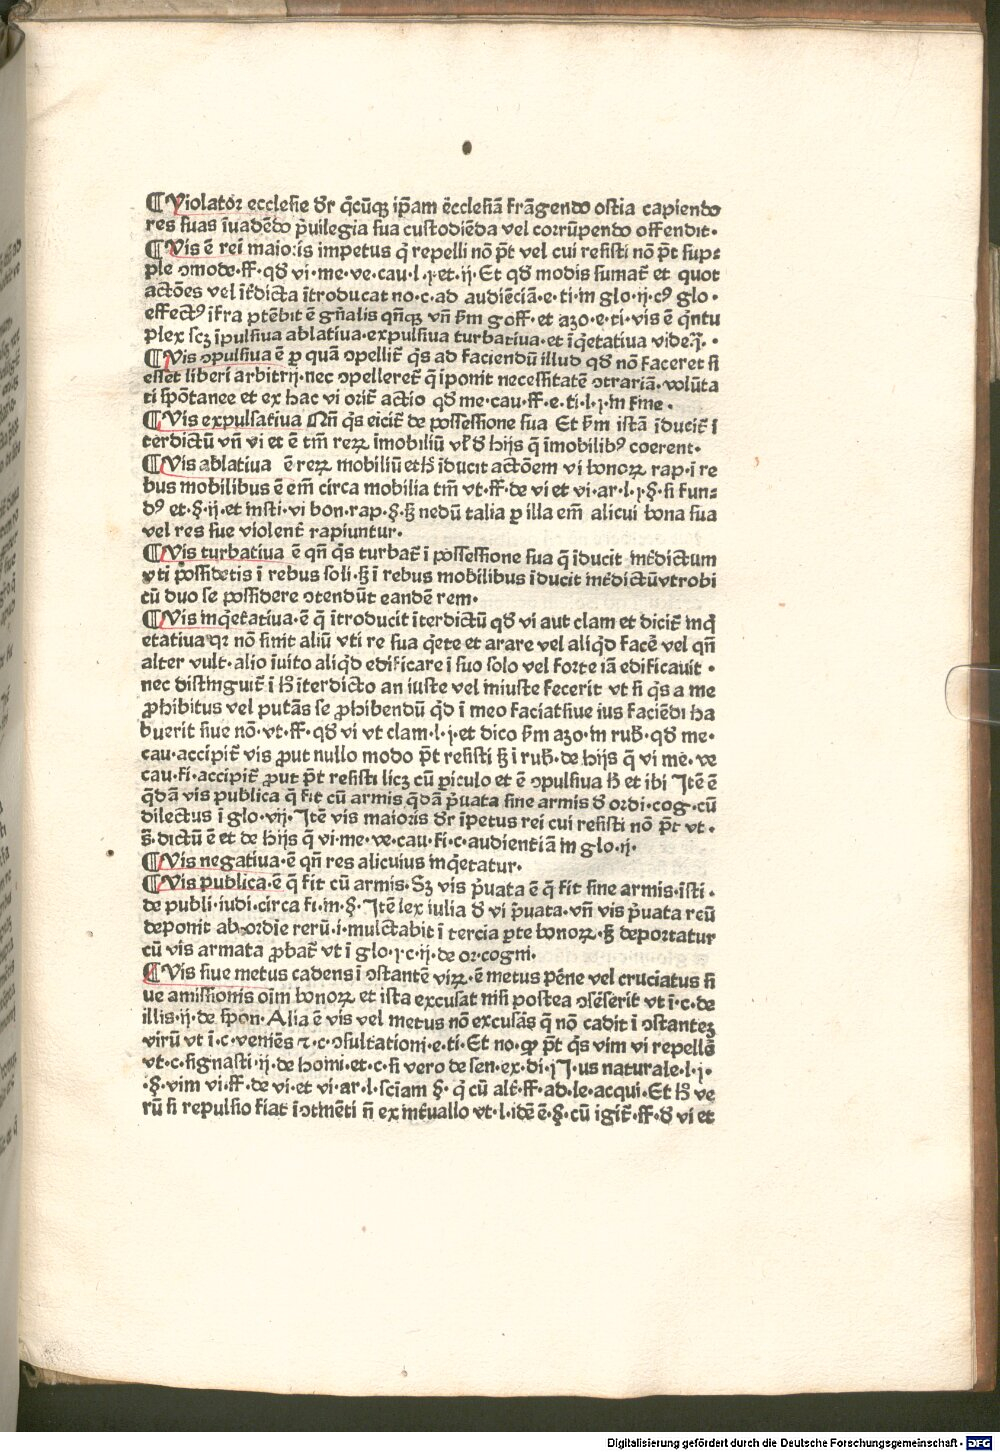 ¶ Violator ecclesie dr̄ q̄cūqꝫ ip̄am ecclesiā frāgendo ostia capiendo
res suas īuadēdo p̄uilegia sua custodiēda vel corrūpendo offendit·
¶ Vis ē rei maioris impetus q̄ repelli nō p̄t vel cui resisti nō p̄t sup⸗
ple ꝯmode·ff·qd̄ vi·me·ve·cau·l·ȷ·et·ij·Et qd̄ modis sumat̄ et quot
actōes vel īt̄dicta ītroducat no·c·ad audiēciā·e·ti·in glo·ij·cꝰ glo·
effectꝰ īfra ptēbit̄ ē gn̄alis qn̄qꝫ vn̄ bm̄ goff·et azo·e·ti·vis ē q̄ntu
plex scꝫ īpulsiua ablatiua·expulsiua turbatiua·et īq̄etatiua videq̄··
¶ Vis ꝯpulsiua ē ꝑ quā ꝯpellit̄ q̄s ad faciendū illud qd̄ nō faceret si
esset liberi arbitrij·nec ꝯpelleret̄ q̄ īponit necessitatē ꝯtrariā·volūta
ti spōtanee et ex hac vi orit̄ actio qd̄ me·cau·ff·e·ti·l·ȷ·in fine·
¶ Vis expulsatiua Nn̄ q̄s eicit̄ de possessione sua Et bm̄ istā īducit̄ ī
terdictū vn̄ vi et ē tm̄ reꝝ īmobiliū vl̄ d̄ hijs q̄ īmobilibꝰ coerent·
¶ Vis ablatiua ē reꝝ mobiliū et h̄ īducit actōem vi bonoꝝ rap·ī re
bus mobilibus ē em̄ circa mobilia tm̄ vt·ff·de vi et vi·ar·l·ȷ·§·si fun⸗
dꝰ et·§·ij·et insti·vi bon·rap·§·ꝫ nedū talia ꝑ illa em̄ alicui bona sua
vel res sue violent̄ rapiuntur·
¶ Vis turbatiua ē qn̄ q̄s turbat̄ ī possessione sua q̄ īducit int̄dictum
vti possidetis ī rebus soli·ꝫ ī rebus mobilibus īducit int̄dictū vtrobi
cū duo se possidere ꝯtendūt eandē rem·
¶ Vis inq̄etatiua·ē q̄ ītroducit īterdictū qd̄ vi aut clam et dicit̄ inq̄
etatiua qꝛ nō sinit aliū vti re sua q̄ete et arare vel aliq̄d facē vel qn̄
alter vult·alio īuito aliq̄d edificare ī suo solo vel forte iā edificauit·
nec distinguit̄ ī h̄ īterdicto an iuste vel iniuste fecerit vt si q̄s a me
ꝓhibitus vel putās se ꝓhibendū q̄d ī meo faciat siue ius faciēdi ha
buerit siue nō·vt·ff·qd̄ vi vt clam·l·ȷ·et dico bm̄ azo·in rub̄·qd̄ me·
cau·accipit̄ vis ꝓut nullo modo p̄t resisti ꝫ ī rub̄·de hijs q̄ vi me·ve
cau·fi·accipit̄ ꝓut p̄t resisti licꝫ cū ꝑiculo et ē ꝯpulsiua h̄ et ibi Itē ē
q̄dā vis publica q̄ fit cū armis q̄dā p̄uata sine armis d̄ ordi·cog·cū
dilectus ī glo·vij·Itē vis maioris dr̄ īpetus rei cui resisti nō p̄t vt·
s̄·dictū ē et de hijs q̄ vi·me·ve·cau·fi·c·audientiā in glo·ij·
¶ Vis negatiua·ē qn̄ res alicuius inq̄etatur·
¶ Vis publica·ē q̄ fit cū armis·Sꝫ vis p̄uata ē q̄ fit sine armis·īsti·
de publi·iudi·circa fi·in·§·Itē lex iulia d̄ vi p̄uata·vn̄ vis p̄uata reū
deponit ab ordīe rerū·i·mulctabit̄ ī tercia ꝑte bonoꝝ·ꝫ deportatur
cū vis armata ꝓbat̄ vt ī glo·ȷ·c·ij·de or·cogni·
¶ Vis siue metus cadens ī ꝯstantē viꝝ·ē metus pēne vel cruciatus si
ue amissionis oīm bonoꝝ et ista excusat nisi postea ꝯsēserit vt ī·c·de
illis·ij·de spon·Alia ē vis vel metus nō excusās q̄ nō cadit ī ꝯstanteꝫ
virū vt ī·c·veniēs ⁊·c·ꝯsultationi·e·ti·Et no·ꝙ p̄t q̄s vim vi repellē
vt·c·signasti·ij·de homi·et·c·si vero de sen·ex·di·ȷ·Ius naturale·l·ȷ·
·§·vim vi·ff·de vi·et vi·ar·l·sciam §·q̄ cū alt̄·ff·ad·le·acqui·Et h̄ ve
rū si repulsio fiat īꝯtinēti n̄ ex int̄uallo vt·l·idē ē·§·cū igit̄·ff·d̄ vi et
Digitalisierung gefördert durch die Deutsche Forschungsgemeinschaft - DFG